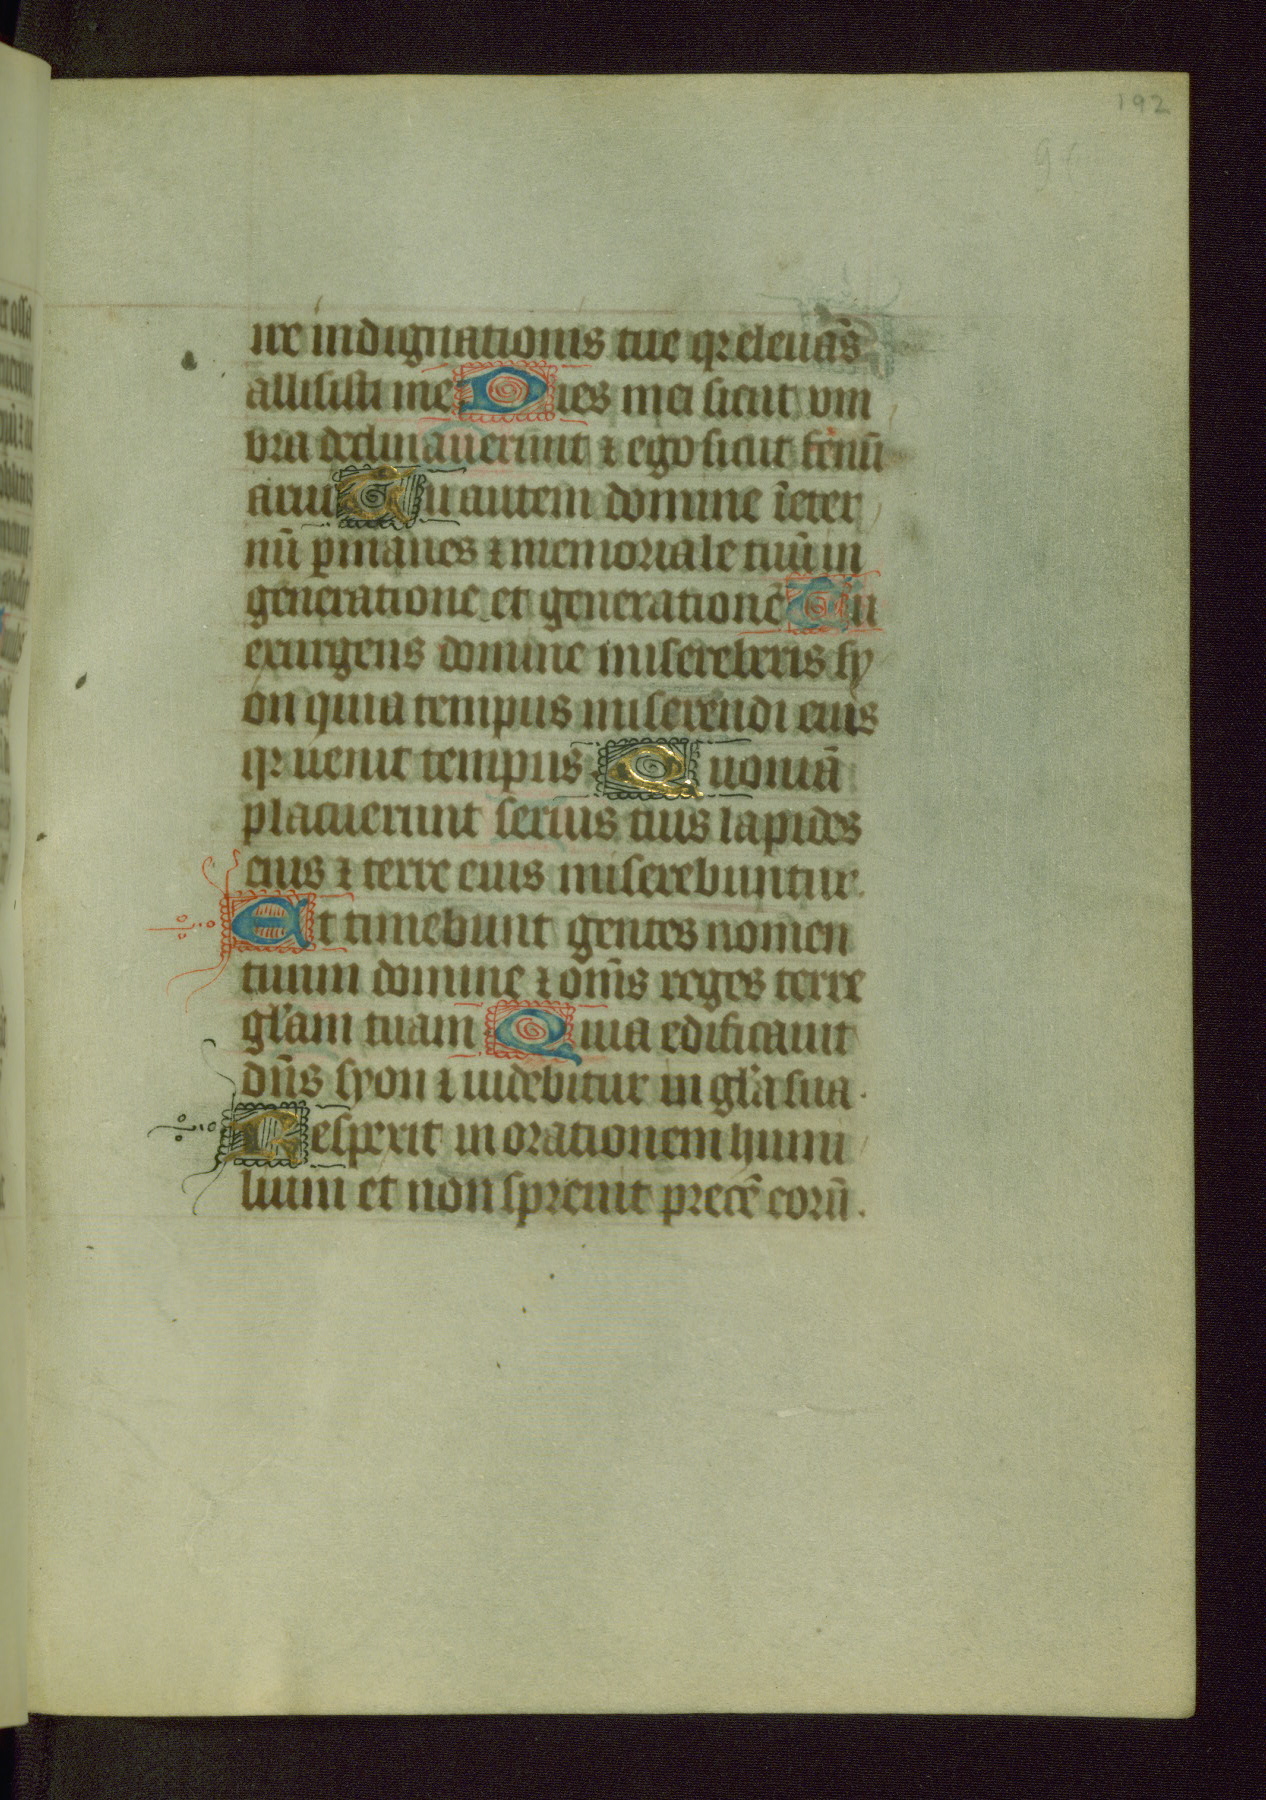 192
ire indignationis tue qr eleuās
allisisti me Dies mei sicut vm
bra declinauerunt ⁊ ego sicut fenū
arui Tu autem domine ī eter
nū ꝑmanes ⁊ memoriale tuū in
generatione et generationē Tu
exurgens domine misereberis sy
on quia tempus miserendi eius
qr uenit tempus Quoniā
placuerunt seruis tuis lapides
eius ⁊ terre eius miserebuntur.
Et timebunt gentes nomen
tuum domine ⁊ om̄s reges terre
gl̄am tuam Quia edificauit
dn̄s syon ⁊ uidebitur in gl̄a sua.
Respexit in orationem humi
lium et non spreuit precē eorū.